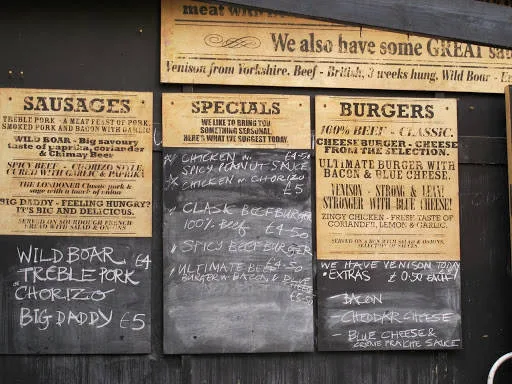 meat
We also have some GREAT
Venison from Yorkshire. Beef - British, 3 weeks hung, Wild Boar -
SAUSAGES
TREBLE PORK - A MEAT FEAST OF PORK,
SMOKED PORK AND BACON WITH GARLIC
WILD BOAR - Big savoury
taste of paprika, coriander
& Chimay Beer
SPICY BEEF
CURED WITH GARLIC & PAPRIKA
THE LONDONER Classic pork &
sage with a touch of
BIG DADDY - FEELING HUNGRY?
IT'S BIG AND DELICIOUS.
SERVED ON SOURDOUGH FRENCH
BREAD WITH SALAD & ONIONS
WILD BOAR £4
TREBLE PORK
CHORIZO
BIG DADDY £5
SPECIALS
WE LIKE TO BRING YOU
SOMETHING SEASONAL.
HERE'S WHAT WE SUGGEST TODAY.
CHICKEN in £4.50
SPICY PEANUT SAUCE
CHICKEN in CHORIZO
£5
CLASK BEEFBURGER
100% Beef £4.50
SPICY BEEFBURGER
£4.50
ULTIMATE BEEF
BURGER w. BACON & BLUE
CHEESE
£5.50
BURGERS
100% BEEF - CLASSIC.
CHEESEBURGER - CHEESE
FROM THE SELECTION.
ULTIMATE BURGER WITH
BACON & BLUE CHEESE.
VENISON - STRONG & LEAN!
STRONGER WITH BLUE CHEESE!
ZINGY CHICKEN - FRESH TASTE OF
CORIANDER, LEMON & GARLIC.
SERVED ON A BUN WITH SALAD & ONIONS.
SELECTION OF SAUCES.
WE HAVE VENISON TODAY
• EXTRAS £0.50 EACH
- BACON
- CHEDDAR CHEESE
- BLUE CHEESE &
CREME FRAICHE SAUCE